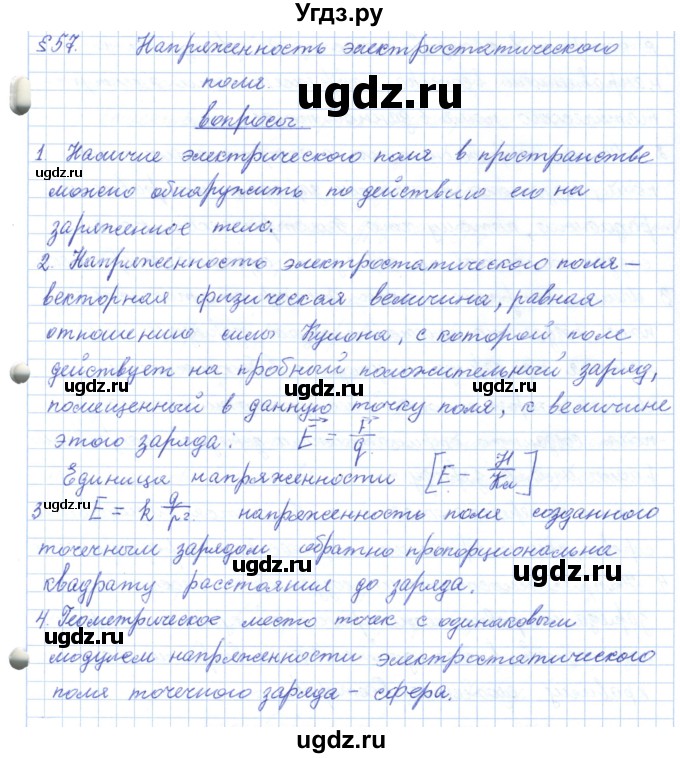 Угдз.ру
§57. Напряженность электростатического
поля.
ugdz.ru
вопросы
1. Наличие электрического поля в пространстве
ugdz.ru
можно обнаружить по действию его на
ugdz.ru
заряженное тело.
2. Напряженность электростатического поля –
векторная физическая величина, равная
отношению силы Кулона, с которой поле
действует на пробный положительный заряд,
ugdz.ru ugdz.ru ugdz.ru
помещенный в данную точку поля, к величине
этого заряда: E⃗ = F⃗/q
Единица напряженности [E – Н/Кл]
3 E = k q/r² напряженность поля созданного
ugdz.ru
точечным зарядом обратно пропорциональна
квадрату расстояния до заряда.
ugdz.ru
4. Геометрическое место точек с одинаковым
ugdz.ru
модулем напряженности электростатического
ugdz.ru
поля точечного заряда – сфера.
ugdz.ru